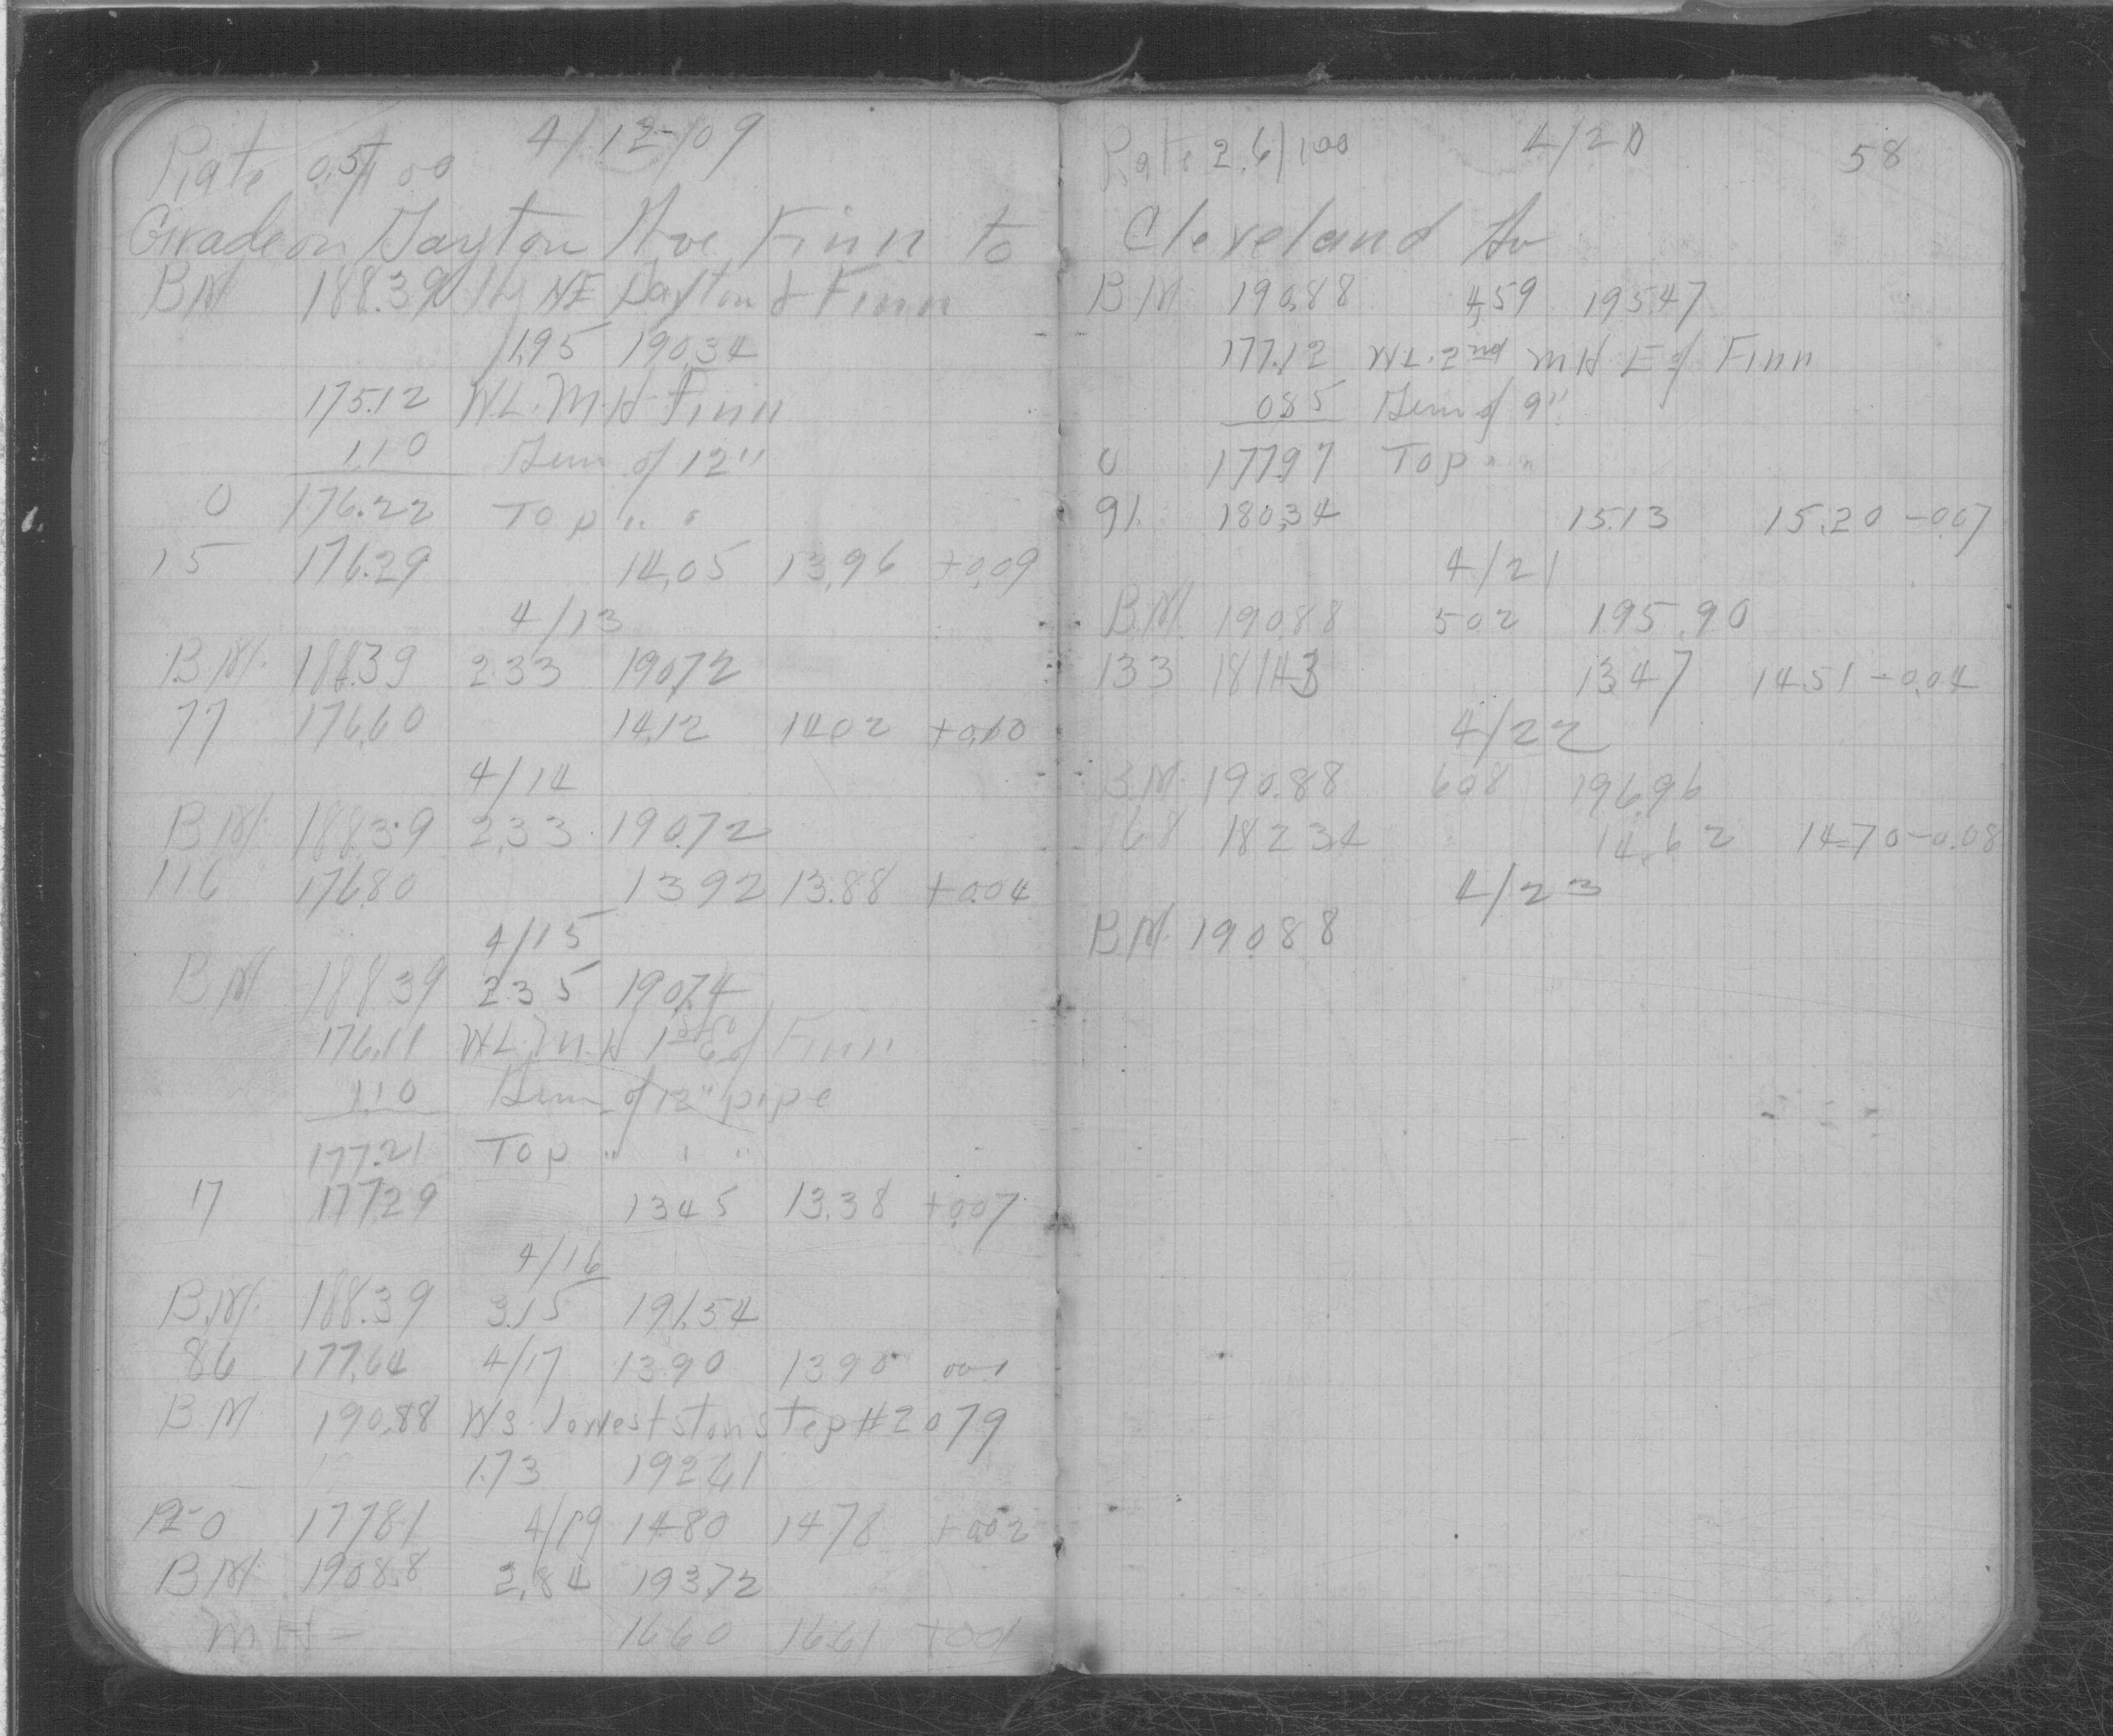 4/12-/09
Rate 0.5/100
Grade on Dayton Ave Finn to
BM 188.39 Hy NE Dayton & Finn
1.95 190.34
175.12 W.L. M.H Finn
1.10 Dim of 12"
0 176.22 Top " "
15 176.29 14.05 13.96 +0.09
4/13
B.M. 188.39 2.33 190.72
77 176.60 14.12 14.02 +0.10
4/14
B.M. 188.39 2.33 190.72
116 176.80 13.92 13.88 +0.04
4/15
BM 188.39 2.35 190.74
176.11 W.L. M.H 1st E of Finn
1.10 Dim of 12" pipe
177.21 Top " " "
17 177.29 13.45 13.38 +0.07
4/16
B.M. 188.39 3.15 191.54
86 177.64 4/17 13.90 13.90
BM 190.88 WS lowest ston step #2079
1.73 192.61
177.81 4/19 14.80 14.78 +0.02
BM. 190.88 2.84 193.72
MH- 16.60 16.61 +001
Rate 2.6/100 4/20 58
Cleveland Av
B.M. 190.88 4.59 195.47
177.12 W.L. 2nd MH E of Finn
0.85 Dim of 9"
0 177.97 Top " "
91. 180.34 15.13 15.20 -0.07
4/21
B.M. 190.88 5.02 195.90
133 181.43 13.47 14.51 -0.04
4/22
B.M. 190.88 6.08 196.96
168 182.34 14.62 14.70 -0.08
4/23
B.M. 190.88